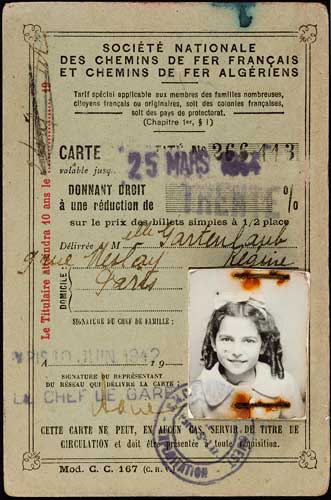 SOCIÉTÉ NATIONALE
DES CHEMINS DE FER FRANÇAIS
ET CHEMINS DE FER ALGÉRIENS
Tarif spécial applicable aux membres des familles nombreuses,
citoyens français ou originaires, soit des colonies françaises,
soit des pays de protectorat.
(Chapitre 1er, § I)
Le Titulaire atteindra 10 ans le 19
CARTE D'IDENTITÉ No 266,413
valable jusq. 25 MARS
DONNANT DROIT
à une réduction de TRENTE %
sur le prix des billets simples à 1/2 place
Délivrée à Melle Gartenlaub
Régine
9 rue Meslay
DOMICILE : Paris
SIGNATURE DU CHEF DE FAMILLE :
PARIS 10 JUIN 1942
A 19
SIGNATURE DU REPRÉSENTANT
DU RÉSEAU QUI DÉLIVRE LA CARTE :
LE CHEF DE GARE
CETTE CARTE NE PEUT, EN AUCUN CAS, SERVIR DE TITRE DE
CIRCULATION et doit être présentée à toute réquisition.
Mod. C. C. 167 (C. H. F.)